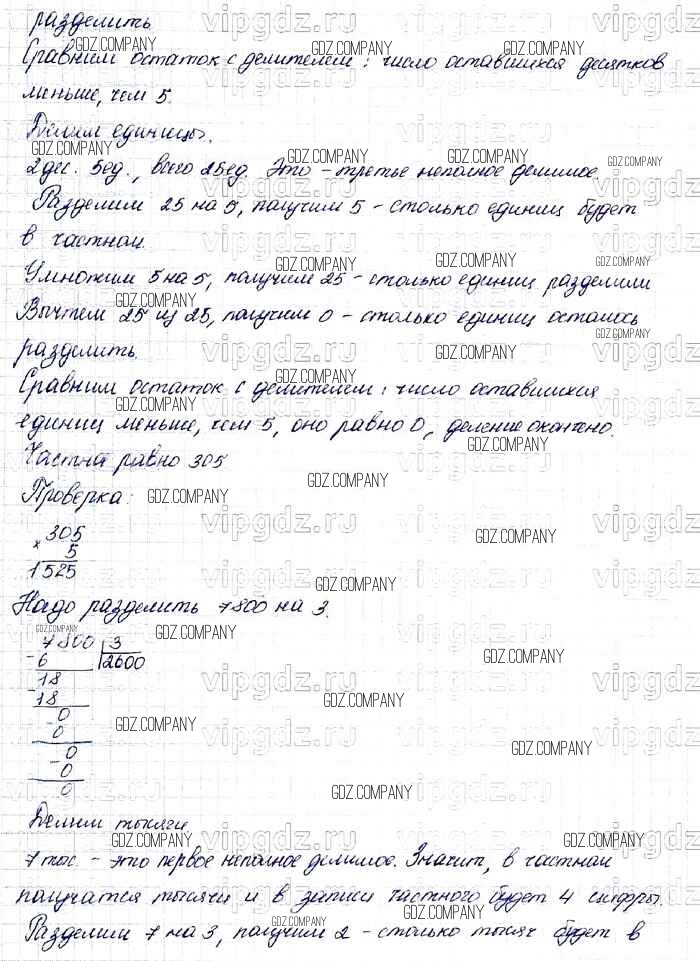 разделить
Сравним остаток с делителем: число оставшихся десятков
меньше, чем 5.
Делим единицы.
2 дес. 5 ед., всего 25 ед. Это - третье неполное делимое.
Разделим 25 на 5, получим 5 - столько единиц будет
в частном.
Умножим 5 на 5, получим 25 - столько единиц разделили
Вычтем 25 из 25, получим 0 - столько единиц осталось
разделить.
Сравним остаток с делителем: число оставшихся
единиц меньше, чем 5, оно равно 0, деление окончено.
Частное равно 305
Проверка:
305
× 5
1525
Надо разделить 7800 на 3.
7800 3
- 6 2600
18
- 18
0
- 0
0
- 0
0
Делим тысячи
7 тыс. - это первое неполное делимое. Значит, в частном
получатся тысячи и в записи частного будет 4 цифры.
Разделим 7 на 3, получим 2 - столько тысяч будет в
GDZ.COMPANY
vipgdz.ru